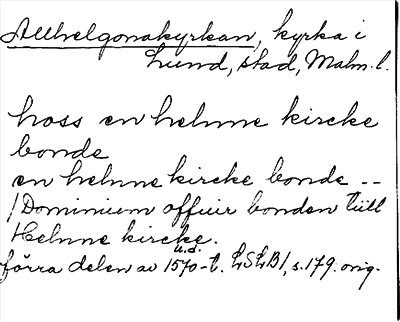 Allhelgonakyrkan, kyrka i
Lund, stad, Malm. l.
hoss en helnne kircke
bonde
en helnne kircke bonde --
/Dominium offuir bonden tiill
Helnne kircke.
u.d.
förra delen av 1570-t. LSLB1, s.179. orig.